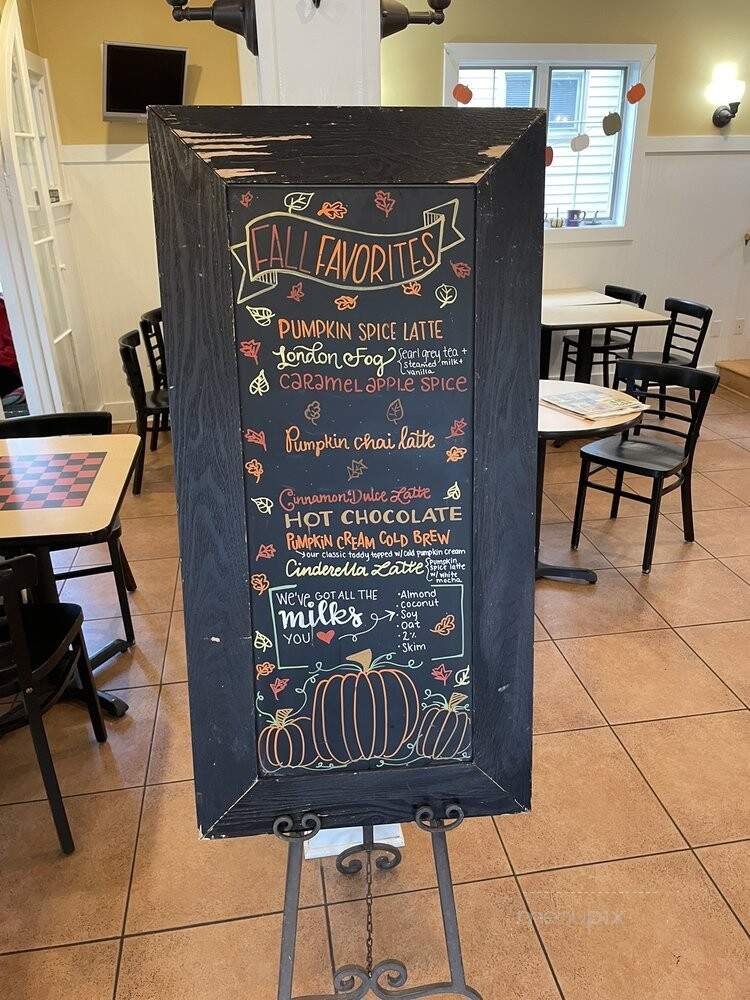 FALL FAVORITES
PUMPKIN SPICE LATTE
London Fog {earl grey tea +
steamed milk +
vanilla
caramel apple spice
Pumpkin chai latte
Cinnamon Dulce Latte
HOT CHOCOLATE
PUMPKIN CREAM COLD BREW
our classic toddy topped w/ cold pumpkin cream
Cinderella Latte {pumpkin
spice latte
w/ white
mocha
WE'VE GOT ALL THE
milks
YOU ♥
·Almond
·coconut
·Soy
·Oat
·2%
·Skim
menupix